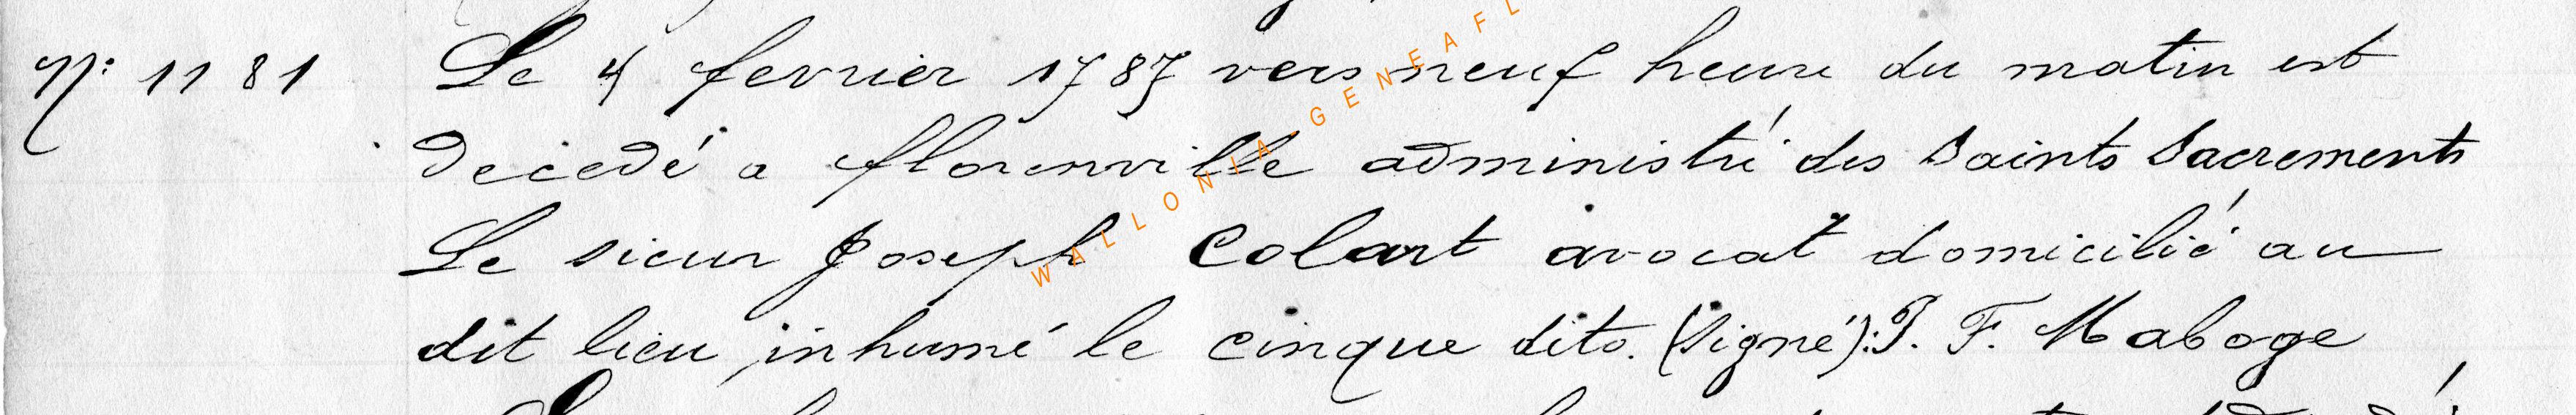 N° 1181 Le 4 fevrier 1787 vers neuf heure du matin est
decedé a florenville administré des Saints Sacrements
Le sieur Joseph Colart avocat domicilié au
dit lieu inhumé le cinque dito. (Signé): J. F. Maboge
WALLONIA GENEAFL